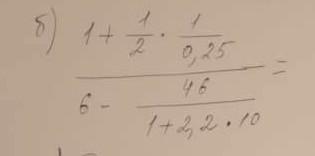 б) (1 + 1/2 · 1/0,25) / (6 - 46/(1 + 2,2 · 10)) =